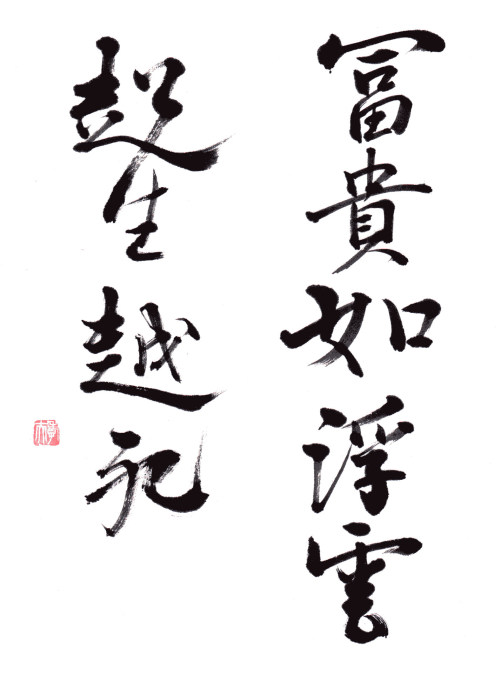 冨貴如浮雲
超生越死